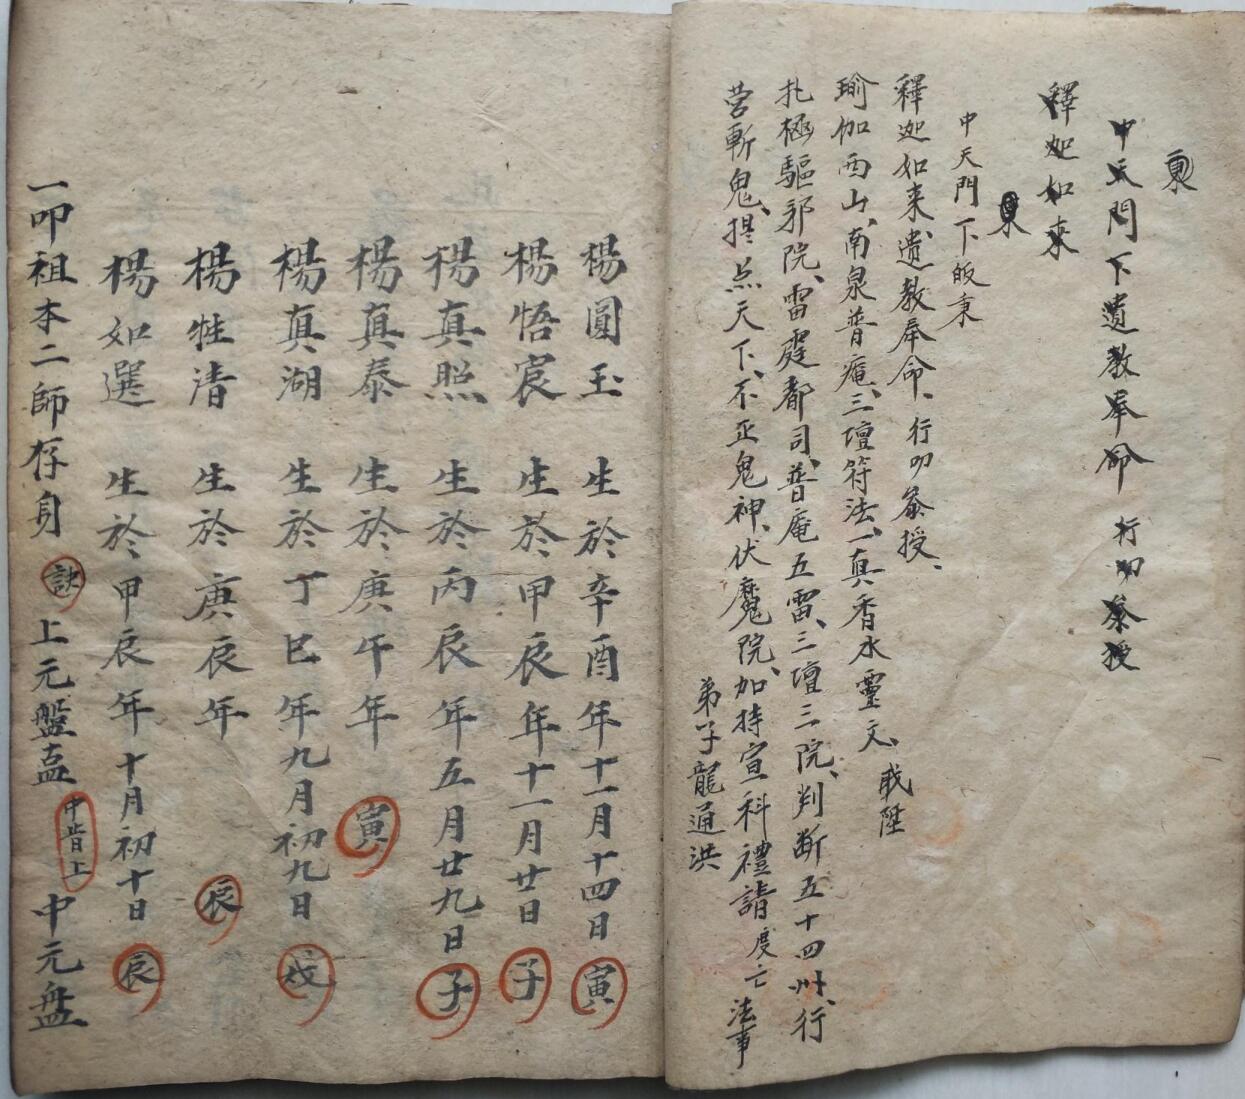 中天門下遺教奉命 行叩叅授
釋迦如來
中天門下皈秉
釋迦如来、遺教奉命、行叩叅授、
瑜伽西山、南泉普庵、三壇符法、一真香水靈文、戒陞
扎極驅邪院、雷霆都司、普庵五雷、三壇三院、判断五十四州、行
营斬鬼、提点天下、不正鬼神、伏魔院、加持宣科禮請度亡法事
弟子龍通洪
楊圓玉 生於辛酉年十一月十四日 寅
楊悟宸 生於甲辰年十一月廿日 子
楊真照 生於丙辰年五月廿九日 子
楊真泰 生於庚午年 寅
楊真湖 生於丁巳年九月初九日
楊性清 生於庚辰年 辰
楊如選 生於甲辰年十月初十日 辰
一叩祖本二師存身 訣 上元盤 中指上 中元盤